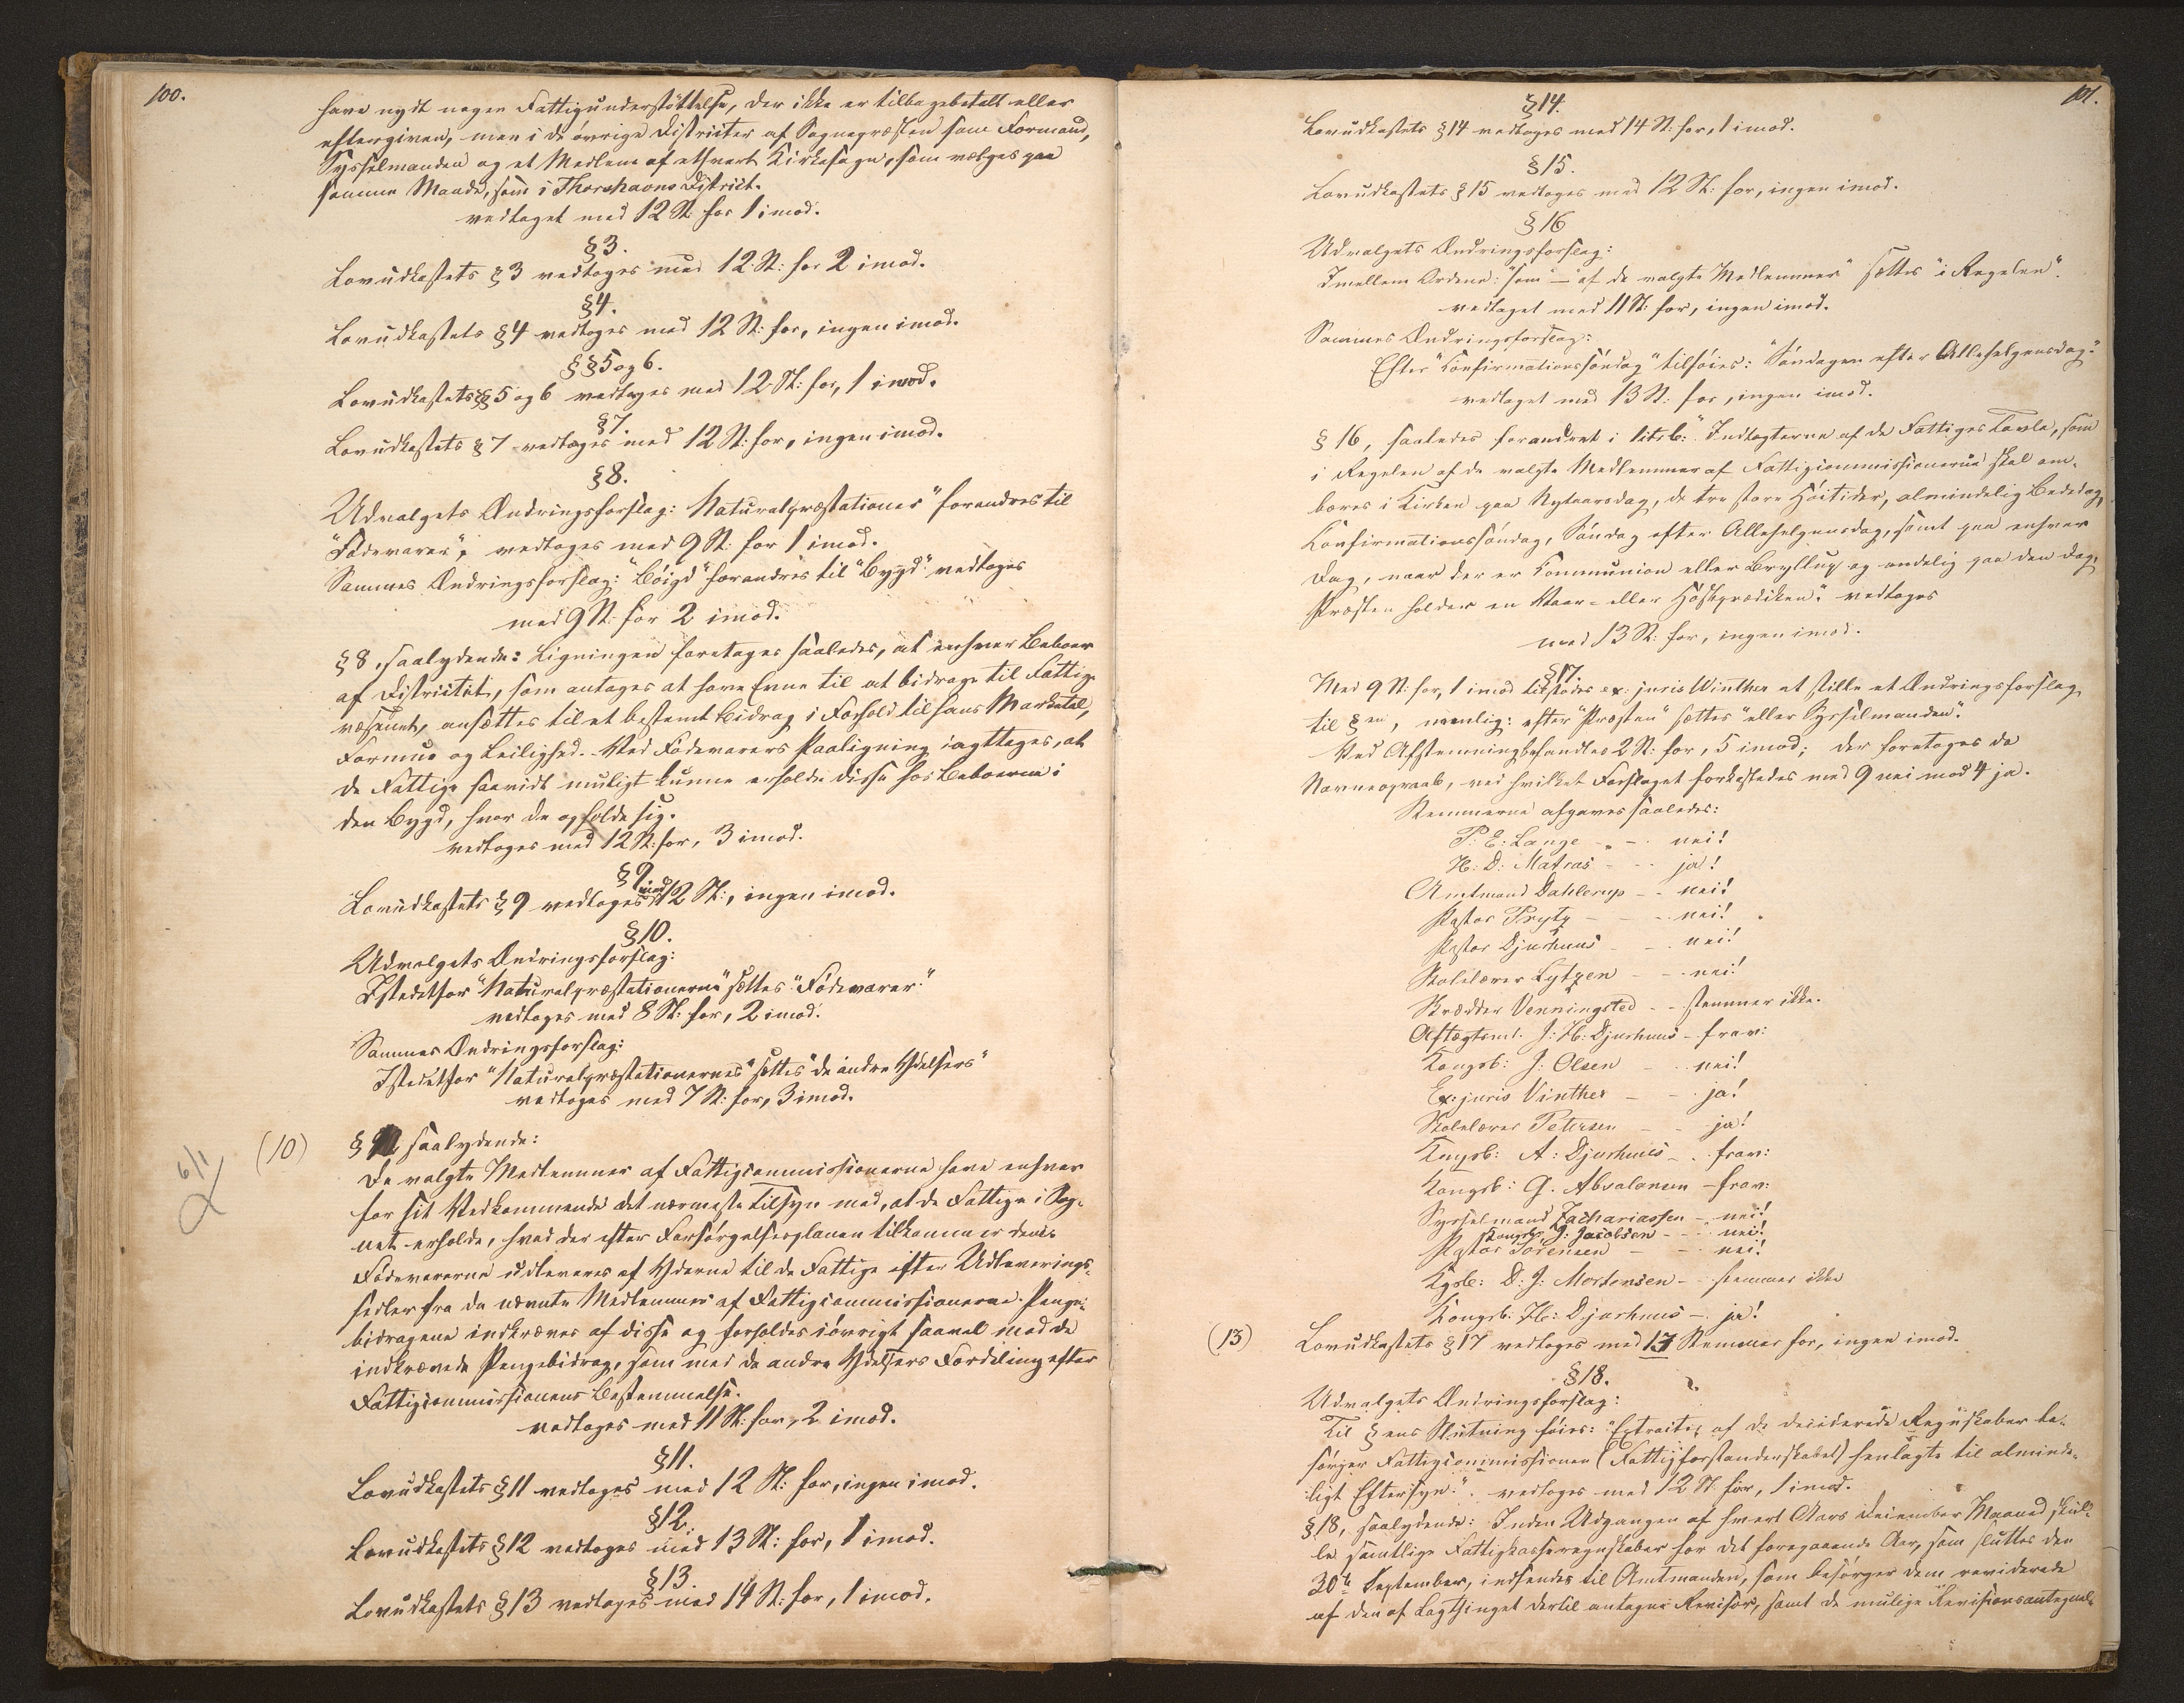 100.
have nydt nogen Fattigunderstøttelse, der ikke er tilbagebetalt eller
eftergiven, men i de øvrige Districter af Sognepræsten som Formand,
Sysselmanden og et Medlem af ethvert Kirkesogn, som vælges paa
samme Maade, som i Thorshavns District.
vedtaget med 12 St: for 1 imod.
§3.
Lovudkastets §3 vedtoges med 12 St: for 2 imod.
§4.
Lovudkastets §4 vedtoges med 12 St: for, ingen imod.
§§5 og 6.
Lovudkastets §§ 5 og 6 vedtoges med 12 St: for, 1 imod.
§7.
Lovudkastets §7 vedtoges med 12 St: for, ingen imod.
§8.
Udvalgets Ændringsforslag: Naturalpræstationer" forandres til
"Fødevarer", vedtoges med 9 St: for 1 imod.
Sammes Ændringsforslag: "Bøigd" forandres til "Bygd" vedtoges
med 9 St: for 2 imod.
§8, saalydende: Ligningen foretages saaledes, at enhver Beboer
af Districtet, som antages at have Evne til at bidrage til Fattig-
væsenet, ansættes til et bestemt Bidrag i Forhold til hans Marketal,
Formue og Leilighed. Ved Fødevarers Paaligning iagttages, at
de Fattige saavidt muligt kunne erholde disse hos Beboerne i
den Bygd, hvor de opholde sig.
vedtoges med 12 St: for, 3 imod.
§9.
Lovudkastets §9 vedtoges med 12 St:, ingen imod.
§10.
Udvalgets Ændringsforslag:
Istedetfor "Naturalpræstationerne" sættes "Fødevarer."
vedtoges med 8 St: for, 2 imod.
Sammes Ændringsforslag:
Istedetfor "Naturalpræstationernes" sættes "de andre Ydelsers"
vedtoges med 7 St: for, 3 imod.
(10) § saalydende:
De valgte Medlemmer af Fattigcommissionerne have enhver
for sit Vedkommende det nærmeste Tilsyn med, at de Fattige i Sog-
net erholde, hvad der efter Forsørgelsesplanen tilkommer dem.
Fødevarerne udleveres af Yderne til de Fattige efter Udleverings-
sedler fra de nævnte Medlemmer af Fattigcommissionerne. Penge-
bidragene indkræves af disse og forholdes iøvrigt saavel med de
indkrævede Pengebidrag, som med de andre Ydelsers Fordeling efter
Fattigcommissionens Bestemmelse.
vedtoges med 11 St: for, 2 imod.
§11.
Lovudkastets §11 vedtoges med 12 St: for, ingen imod.
§12.
Lovudkastets §12 vedtoges med 13 St: for, 1 imod.
§13.
Lovudkastets §13 vedtoges med 14 St: for, 1 imod.
6/1
101.
§14.
Lovudkastets §14 vedtoges med 14 St: for, 1 imod.
§15.
Lovudkastets §15 vedtoges med 12 St: for, ingen imod.
§16
Udvalgets Ændringsforslag:
Imellem Ordene: "som" — "af de valgte Medlemmer" sættes "i Regelen".
vedtaget med 11 St: for, ingen imod.
Sammes Ændringsforslag:
Efter "Confirmationssøndag" tilføies: "Søndagen efter Allehelgensdag."
vedtaget med 13 St: for, ingen imod.
§ 16, saaledes forandret i litr b: "Indtægterne af de Fattiges Tavle, som
i Regelen af de valgte Medlemmer af Fattigcommissionerne skal om-
bæres i Kirken paa Nytaarsdag, de tre store Høitider, almindelig Bededag,
Confirmationssøndag, Søndag efter Allehelgensdag, samt paa enhver
Dag, naar der er Communion eller Bryllup og endelig paa den Dag,
Præsten holder en Vaar- eller Høstprædiken". vedtoges
med 13 St: for, ingen imod.
§17.
Med 9 St: for, 1 imod tilstodes ex: juris Winther at stille et Ændringsforslag
til §en, nemlig: efter "Præsten" sættes "eller Sysselmanden".
Ved Afstemning befandtes 2 St: for, 5 imod; der foretoges da
Navneopraab, ved hvilket Forslaget forkastedes med 9 nei mod 4 ja.
Stemmerne afgaves saaledes:
P: E: Lange - - nei!
H: D: Matras - - ja!
Amtmand Dahlerup - - nei!
Pastor Prytz - - - nei!
Pastor Djurhuus - - nei!
Skolelærer Lützen - - nei!
Skrædder Venningsted - - stemmer ikke.
Aftægtsm. J: H: Djurhuus - frav:
Kongsb: J: Olsen - - nei!
Ex: juris Vinther - - ja!
Skolelærer Petersen - - ja!
Kongsb: A: Djurhuus - - frav:
Kongsb: G. Absalonsen - frav:
Sysselmand Zachariassen - nei!
Kongsb. J: Jacobsen - - nei!
Pastor Sørensen - - nei!
Kgsb: D: J: Mortensen - - stemmer ikke
Kongsb: H: Djurhuus - ja!
(13) Lovudkastets §17 vedtoges med 13 Stemmer for, ingen imod.
§18.
Udvalgets Ændringsforslag:
Til §ens Slutning føies: "Extracter af de deciderede Regnskaber be-
sørger Fattigcommissionen (Fattigforstanderskabet) henlagte til alminde-
ligt Eftersyn." vedtoges med 12 St for, 1 imod.
§18, saalydende: Inden Udgangen af hvert Aars December Maaned skul-
le samtlige Fattigkasseregnskaber for det foregaaende Aar, som sluttes den
30te September, indsendes til Amtmanden, som besørger dem reviderede
af den af Lagthinget dertil antagne Revisor, samt de mulige Revisionsantegnel-